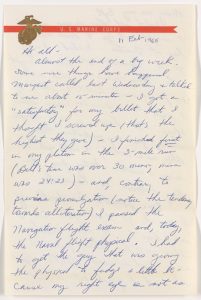 U.S. MARINE CORPS
11 Feb 1965
Hi all -
Almost the end of a big week.
Some nice things have happened.
Margaret called last Wednesday & talked
to me about 15 minutes - I got a
"satisfactory" for my billet that I
thought I screwed up (that's the
highest they give) - I finished first
in my platoon in the 3-mile run
(Bell's time was over 30 min, mine
was 24:23) - and, contrary to
previous promulgation (notice the tendency
towards alliteration) I passed the
Navigation flight exam and, today,
the Naval flight physical. I had
to get the guy that was giving
the physical to fudge a little be-
cause my right eye is not as